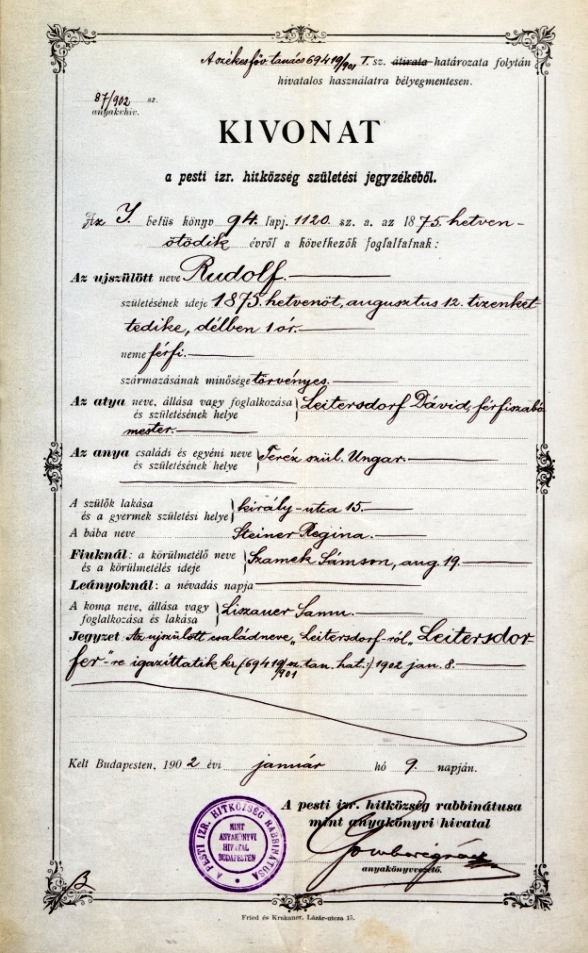 A székesfőv. tanács 69419/901 I. sz. átirata határozata folytán
hivatalos használatra bélyegmentesen.
87/902 sz.
anyakhiv.
KIVONAT
a pesti izr. hitközség születési jegyzékéből.
Az I. betüs könyv 94. lapj. 1120 sz. a. az 1875. hetven-
ötödik évről a következők foglaltatnak:
Az ujszülött neve Rudolf.
születésének ideje 1875. hetvenöt, augusztus 12. tizenket
tedike, délben 1 ór.
neme férfi.
származásának minősége törvényes.
Az atya neve, állása vagy foglalkozása és születésének helye Leitersdorf Dávid, férfiszabó
mester.
Az anya családi és egyéni neve és születésének helye Teréz szül. Ungar.
A szülők lakása és a gyermek születési helye király-utca 15.
A bába neve Steiner Regina.
Fiuknál: a körülmetélő neve és a körülmetélés ideje Szamek Sámson, aug. 19.
Leányoknál: a névadás napja
A koma neve, állása vagy foglalkozása és lakása Liszauer Samu.
Jegyzet: Az ujszülött családneve „Leitersdorf-ról „Leitersdor
fer"-re igazíttatik ki (69419/901 sz. tan. hat.) 1902 jan. 8.
Kelt Budapesten, 1902 évi január hó 9. napján.
A pesti izr. hitközség rabbinátusa
mint anyakönyvi hivatal
anyakönyvvezető.
A PESTI IZR. HITKÖZSÉG RABBINATUSA
MINT
ANYAKÖNYVI
HIVATAL
BUDAPESTEN
B
Fried és Krakauer, Lázár-utcza 15.